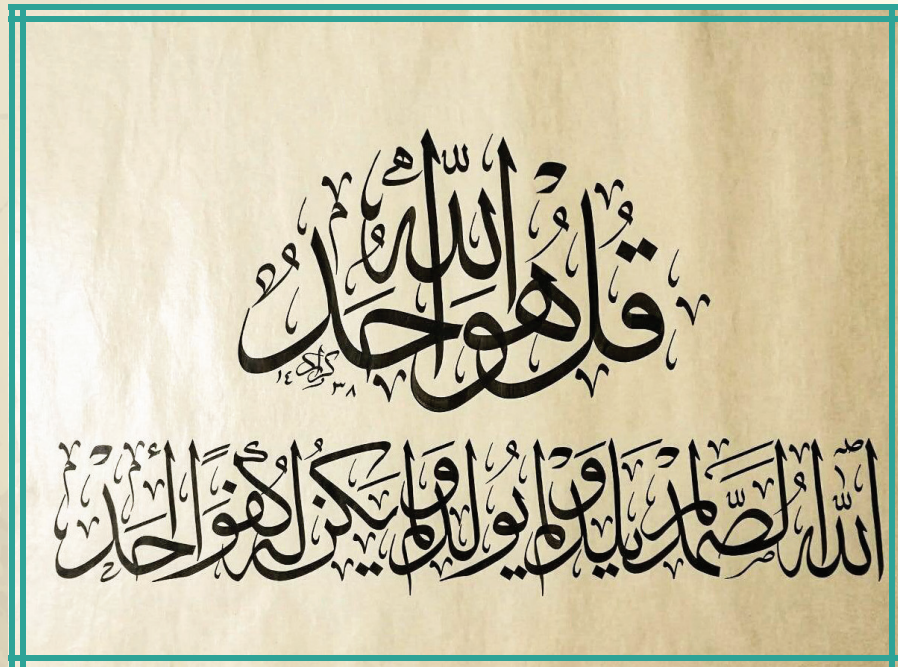 قُلْ هُوَ اللَّهُ أَحَدٌ
١٤٣٨
اللَّهُ الصَّمَدُ لَمْ يَلِدْ وَلَمْ يُولَدْ وَلَمْ يَكُنْ لَهُ كُفُوًا أَحَدٌ